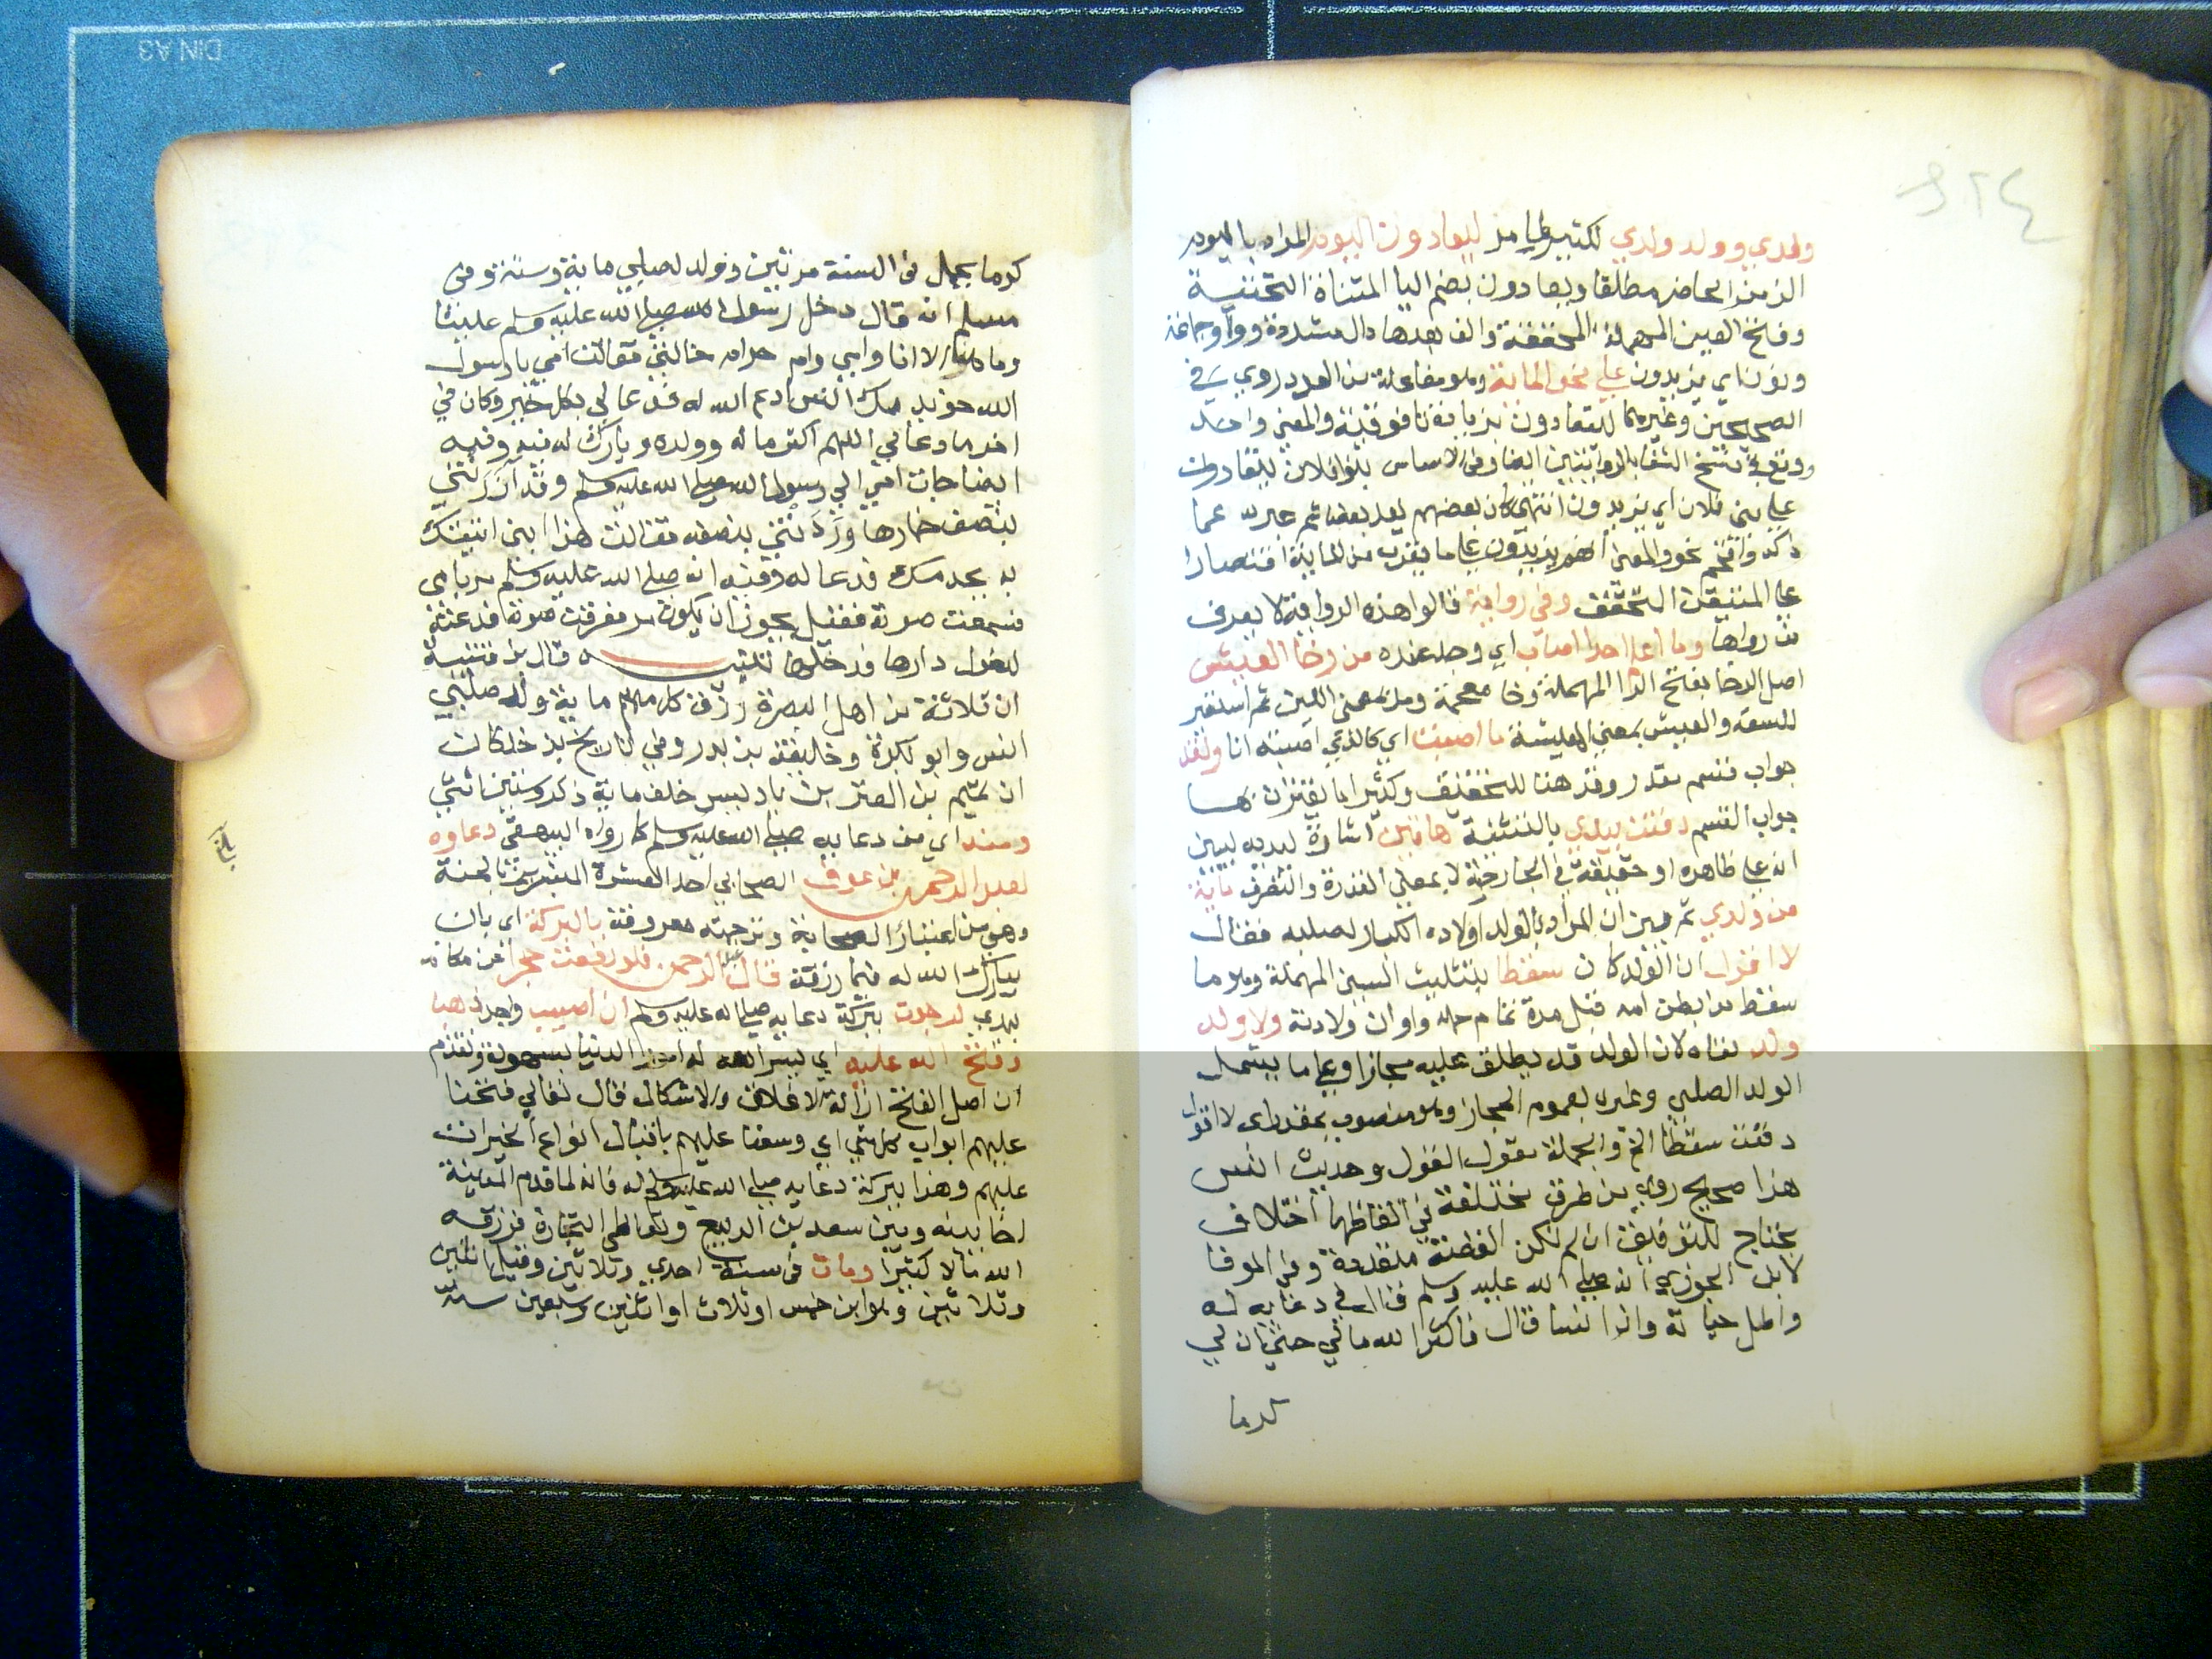 ولدي وولد ولدي لكثير طا مز ليعادون اليوم المراد باليوم
الزمن الحاضر مطلقا ويعادون بضم اليا المثناة التحتية
وفتح العين المهملة المخففة والف بعدها دال مشددة وواو جماعة
ونون اي يزيدون علي نحو الماية وهو مفاعلة من العد دروي في
الصحيحين وغيرهما ليتعادون بزيادة تا فوقية والمعني واحد
ووقع في نسخ الشفا بالروايتين ايضا وفي الاساس بنوا فلان يتعادون
علي بني فلان اي يزيدون انتهي كان بعضهم يعد بعضا ثم خبر به عما
ذكر واقحم نحو والمعني انهم يزيدون علي ما يقرب من الماية اقتصارا
علي المتيقن المحقق وفي رواية قالوا هذه الرواية لا يعرف
من رواها وما اعلم احدا اصاب اي وجد عنده من رخا العيش
اصل الرخا بفتح الرا المهملة وخا معجمة ومد بمعني اللين ثم استعير
للسعة والعيش بمعني المعيشة ما اصبت اي كالذي اصبته انا ولقد
جواب قسم مقدر وقد هنا للتحقيق وكثيرا ما يقترن بها
جواب القسم دفنت بيدي بالتثنية هاتين اشارة ليديه ليبين
انه علي ظاهره او حقيقة في الجارحة لا بمعني القدرة والتصرف ماية
من ولدي ثم بين ان المراد بالولد اولاده الكبار لصلبه فقال
لا اقول ان الولد كان سقطا بتثليث السين المهملة وهو ما
سقط من بطن امه قبل مدة تمام حمله واوان ولادته ولا ولد
ولد نفاه لان الولد قد يطلق عليه مجازا وعلي ما يشمل
الولد الصلبي وغيره بعموم المجاز وهو منصوب بمقدر اي لا اقول
دفنت سقطا الخ والجملة مقول القول وحديث انس
هذا صحيح روي من طرق مختلفة في الفاظها اختلاف
يحتاج للتوفيق ان لم تكن القصة متعددة وفي الوفا
لابن الجوزي انه صلي الله عليه وسلم قال في دعايه له
واطل حياته وان انسا قال فاكثر الله مالي حتي ان لي
كرما
كرما يحمل في السنة مرتين وولد لصلبي ماية وستة وفي
مسلم انه قال دخل رسول الله صلي الله عليه وسلم علينا
وما هو الا انا وامي وام حرام خالتي فقالت امي يا رسول
الله خويدمك انس ادع الله له فدعا لي بكل خير وكان في
اخر ما دعا لي اللهم اكثر ماله وولده وبارك له فيه وفيه
ايضا جات امي الي رسول الله صلي الله عليه وسلم وقد ازرتني
بنصف خمارها وردتني بنصفه فقالت هذا ابني اتيتك
به يخدمك فدعا له وفيه انه صلي الله عليه وسلم مر بامي
فسمعت صوته فقيل يجوز ان يكون مر فعرفت صوته فدعته
لدخول دارها فدخلها تنبيه قال بن قتيبة
ان ثلاثة من اهل البصرة رزق كل منهم ماية ولد صلبي
انس وابو بكرة وخليفة بن بدر وفي تاريخ بن خلكان
ان تميم بن المعز بن باديس خلف ماية ذكر وستين انثي
ومنه اي من دعايه صلي الله عليه وسلم كما رواه البيهقي دعاوه
لعبد الرحمن بن عوف الصحابي احد العشرة المبشرين بالجنة
وهو من اغنيا الصحابة وترجمته معروفة بالبركة اي بان
يبارك الله له فيما رزقه قال عبد الرحمن فلو رفعت حجرا عن مكانه
بيدي لرجوت ببركة دعايه صلي الله عليه وسلم ان اصيب واجد ذهبا
وفتح الله عليه اي يسر الله له امور الدنيا بسهولة وتقدم
ان اصل الفتح ازالة الاغلاق والاشكال قال تعالي فتحنا
عليهم ابواب كل شي اي وسعنا عليهم باقبال انواع الخيرات
عليهم وهذا ببركة دعايه صلي الله عليه وسلم له فانه لما قدم المدينة
اخا بينه وبين سعد بن الربيع وتعاطي التجارة فرزقه
الله مالا كثيرا ومات في سنة احدي وثلاثين وقيل اثنين
وثلاثين وهو ابن خمس او ثلاث او اثنين وسبعين سنة
بلغ